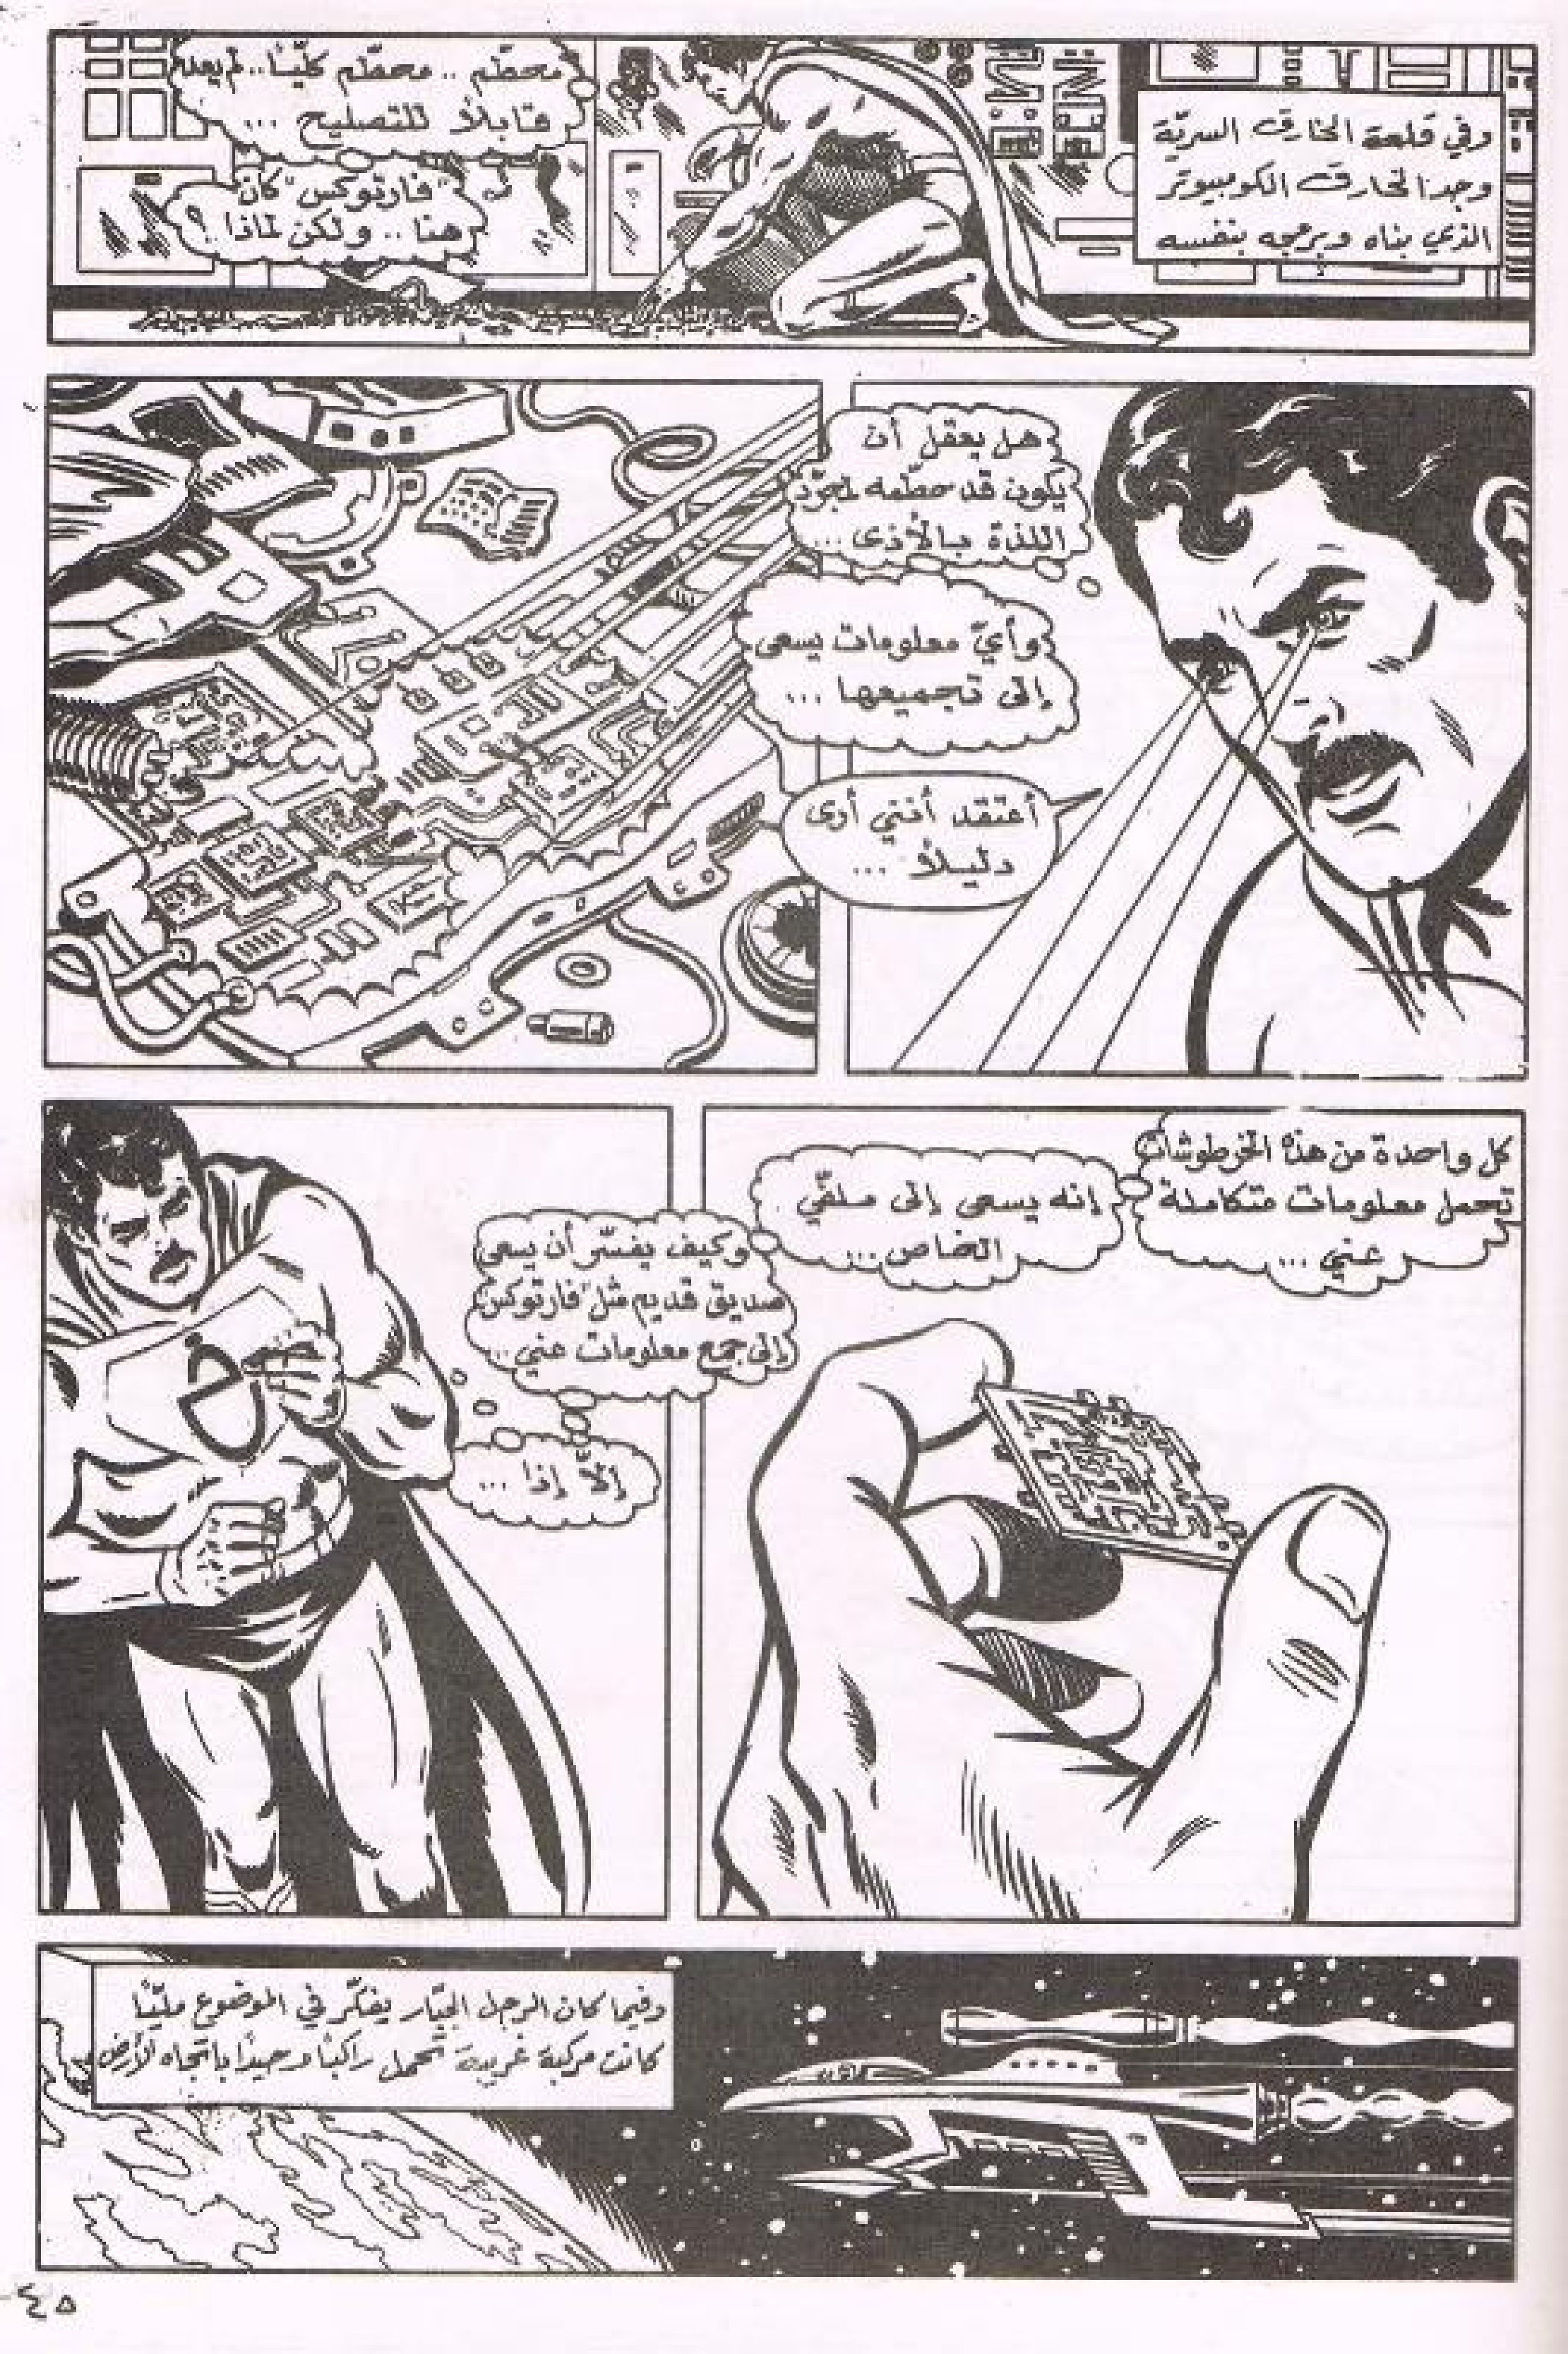 وفي قلعة الخارق السريّة
وجد الخارق الكومبيوتر
الذي بناه وبرمجه بنفسه
محطّم .. محطّم كليّاً.. لم يعد
قابلاً للتصليح ...
"فارتوكس" كان
هنا .. ولكن لماذا ؟
هل يعقل أن
يكون قد حطّمه لمجرّد
اللذة بالأذى ...
وأيّ معلومات يسعى
إلى تجميعها ...
أعتقد أنني أرى
دليلاً ...
كل واحدة من هذه الخرطوشات
تحمل معلومات متكاملة
عني ...
إنه يسعى إلى ملفّي
الخاص ...
وكيف يفسّر أن يسعى
صديق قديم مثل "فارتوكس"
إلى جمع معلومات عني ..
إلاّ إذا ...
خ
وفيما كان الرجل الجبّار يفكّر في الموضوع مليّاً
كانت مركبة غريبة تحمل راكباً وحيداً باتجاه الأرض
٤٥